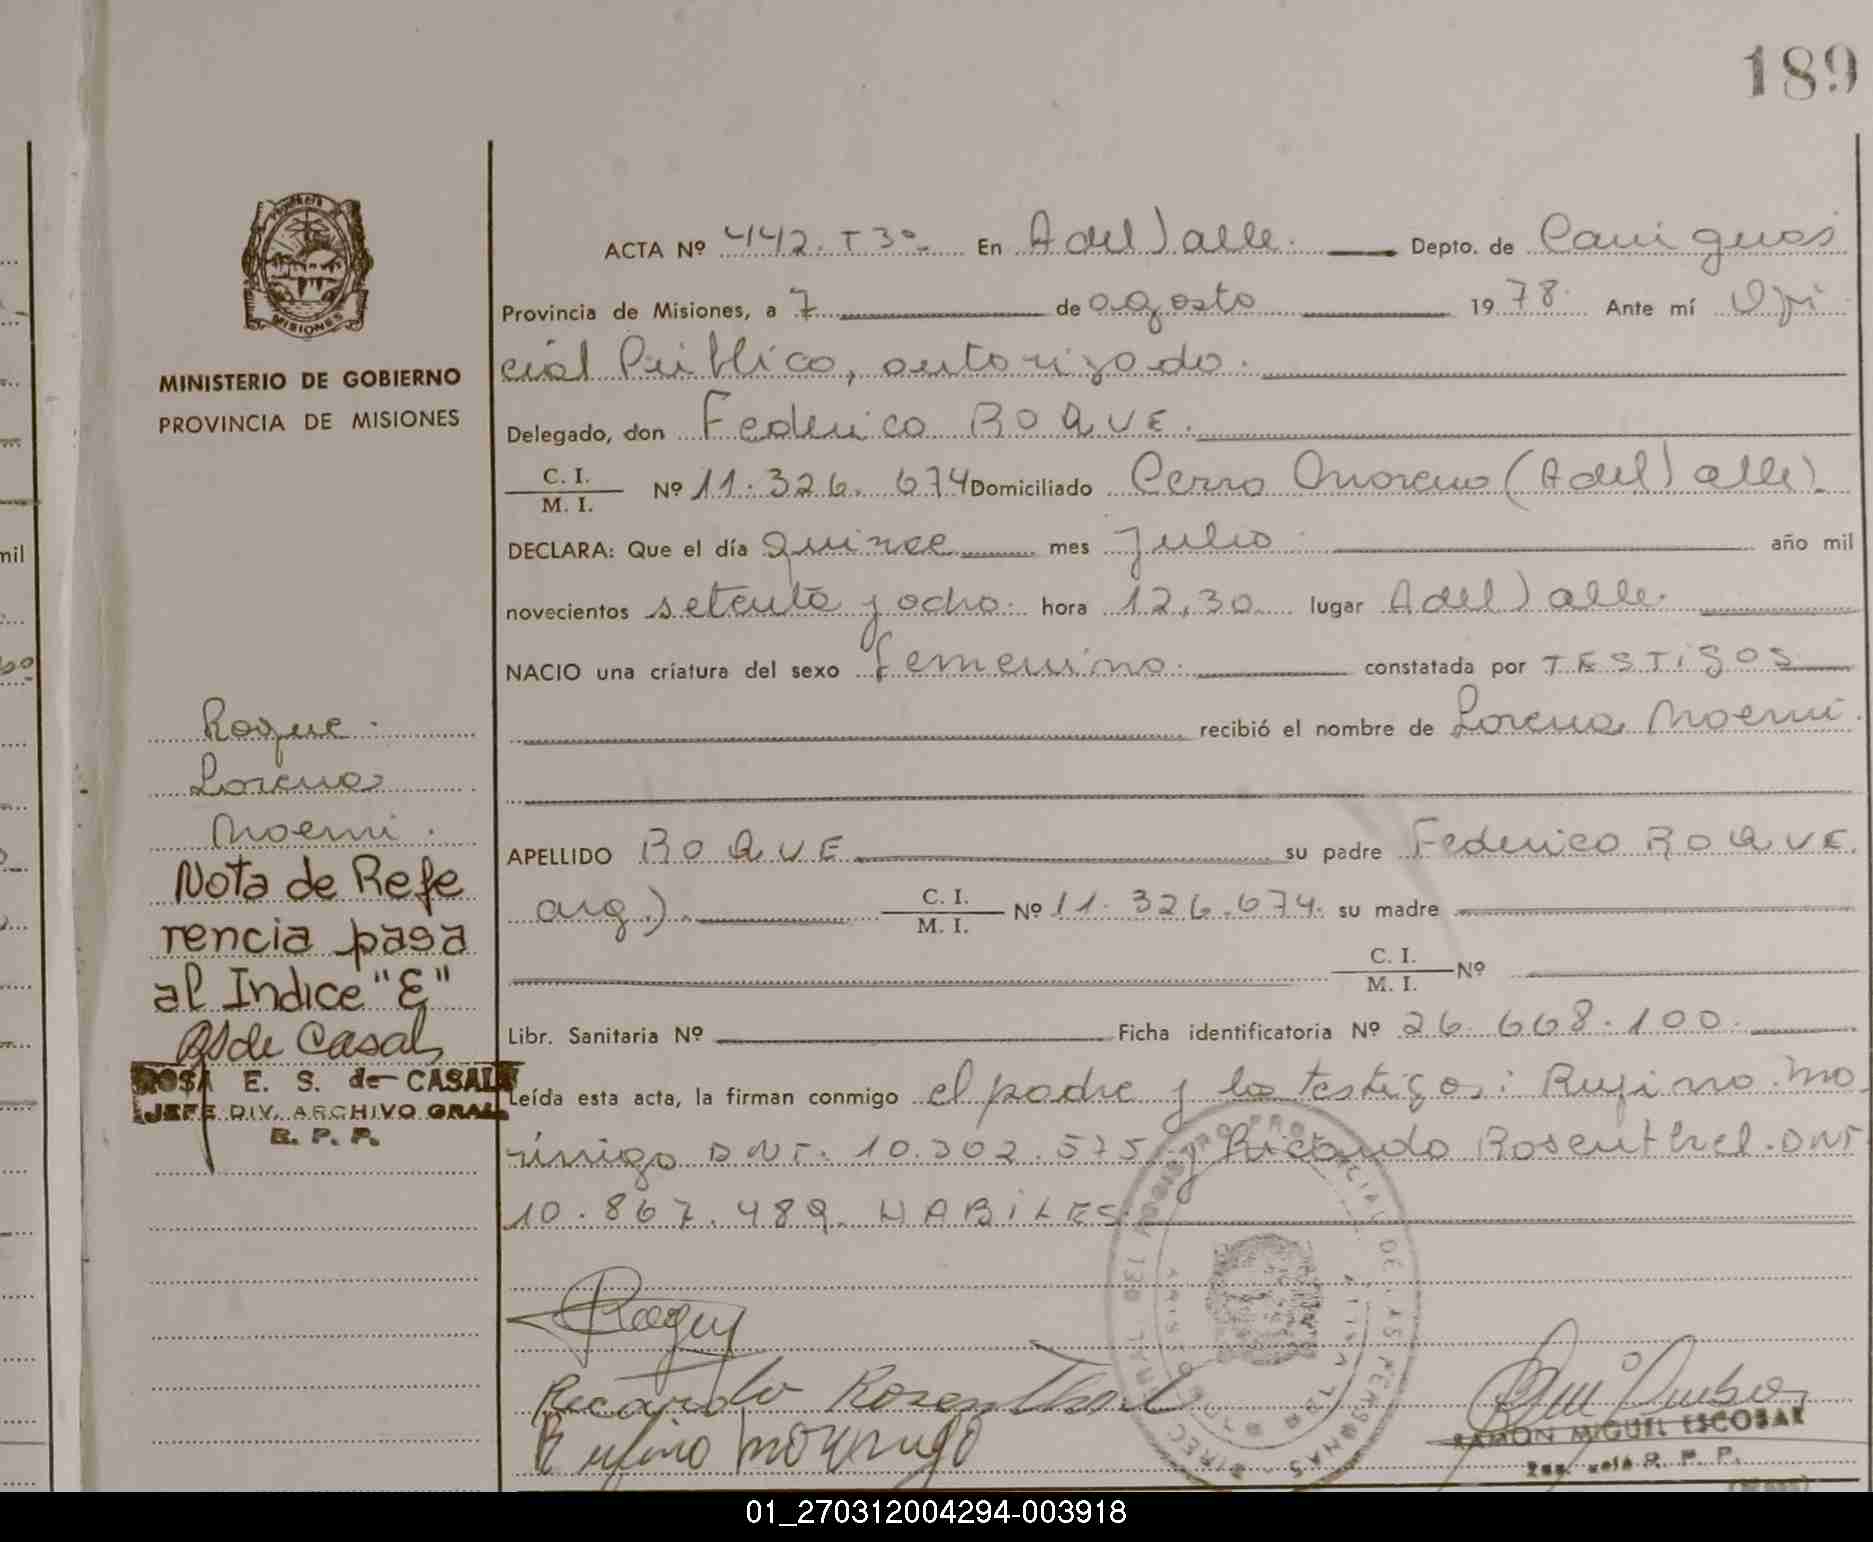 189
MISIONES
MINISTERIO DE GOBIERNO
PROVINCIA DE MISIONES
ACTA Nº 442. T 3º En A del Valle. Depto. de Cainguas
Provincia de Misiones, a 7 de agosto 1978. Ante mí Ofi
cial Público, autorizado.
Delegado, don Federico ROQUE.
C. I.
M. I. Nº 11.326.674 Domiciliado Cerro Moreno (A del Valle).
DECLARA: Que el día quince mes julio año mil
novecientos setenta y ocho. hora 12,30 lugar A del Valle.
NACIO una criatura del sexo femenino. constatada por TESTIGOS
recibió el nombre de Lorena Noemi.
APELLIDO ROQUE su padre Federico ROQUE
arg.). C. I.
M. I. Nº 11.326.674. su madre
C. I.
M. I. Nº
Libr. Sanitaria Nº Ficha identificatoria Nº 26.668.100.
Leída esta acta, la firman conmigo el padre y los testigos: Rufino Mo
rinigo DNI. 10.302.575 y Ricardo Rosenthal. DNI
10.867.489. HABILES
Roque
Lorena
Noemi.
Nota de Refe
rencia pasa
al Indice "E"
RS de Casal
ROSA E. S. de CASAL
JEFE DIV. ARCHIVO GRAL
R. P. P.
Ricardo Rosenthal
Rufino Morinigo
RAMON MIGUEL ESCOBAR
mil
01_270312004294-003918